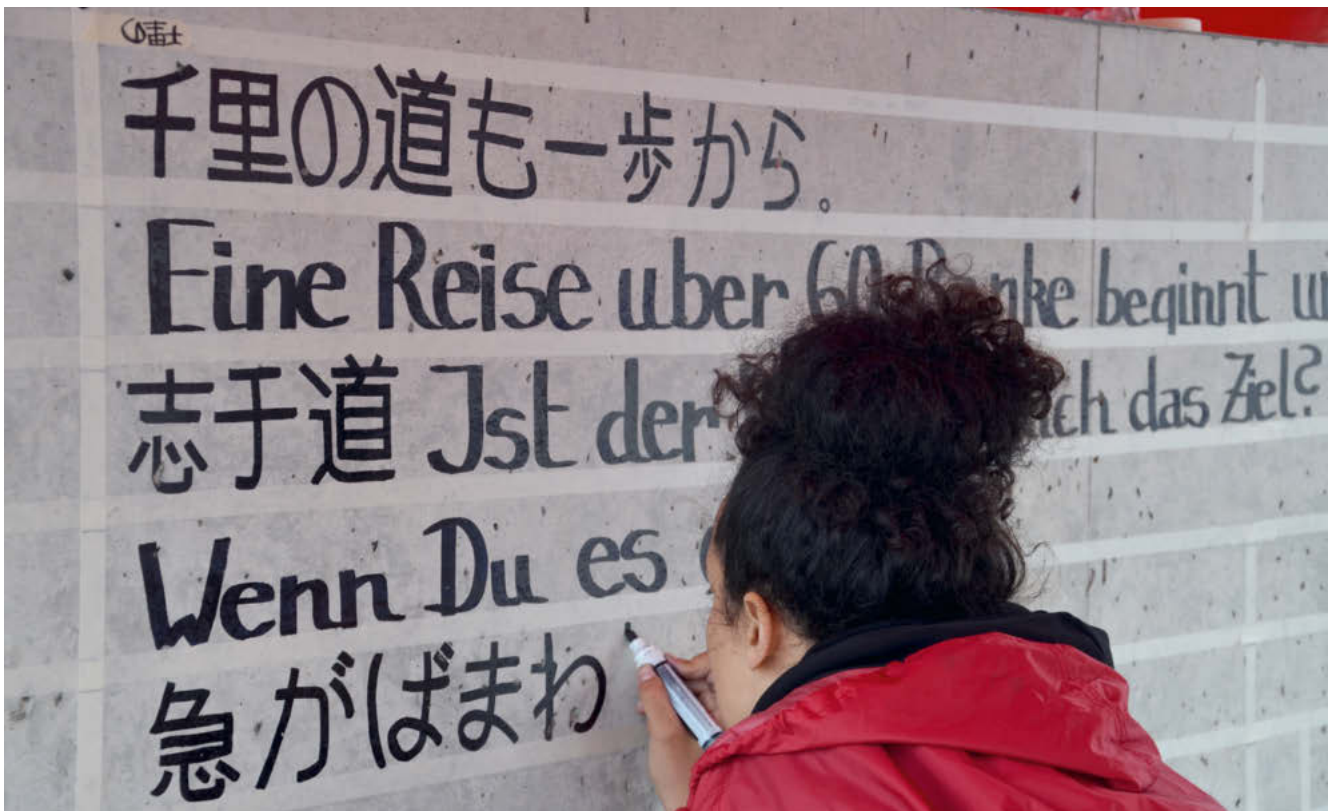 千里の道も一歩から。
Eine Reise uber 60 beginnt
志于道 Jst der das Ziel?
Wenn Du es
急がばまわ